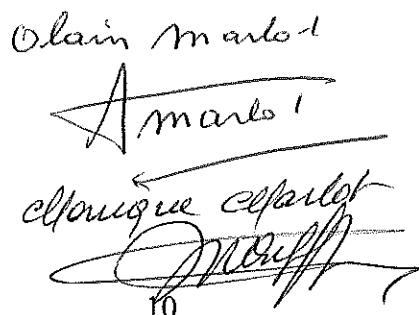 Olain Marlot
Amarlot
Monique Marlot
10